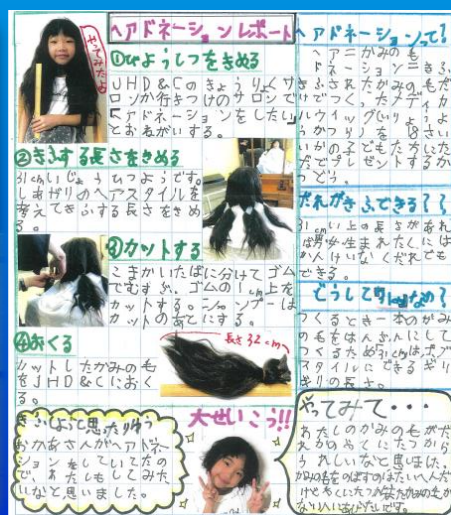 ヘアドネーションレポート
やってみたよ
①びようしつをきめる
JHD&Cのきょうりょくサ
ロンか行きつけのサロンで
「ヘアドネーションをしたい」
とおねがいする。
②きふする長さをきめる
31cmいじょうひつようです。
しあがりのヘアスタイルを
考えてきふする長さをきめ
る。
③カットする
こまかいたばに分けてゴム
でむすぶ。ゴムの1cm上を
カットする。シャンプーは
カットのあとにする。
④おくる
カットしたかみの毛
をJHD&Cにおく
る。
長さ32cm
きふしようと思ったりゆう
おかあさんがヘアドネー
ションをしていてたの
で、あたしもしてみた
いなと思いました。
大せいこう!!
ヘアドネーションって?
ヘアニかみのも
ドネーションニきふ
きふされたかみのもだ
けでつくったメディカ
ルウィッグ(いりょうよ
うかつら)を18さい
いかの子どもたちにた
だでプレゼントするか
つどう。
だれがきふできる??
31cm以上の長さがあれ
ば男女生まれたくには
かんけいなくだれでも
できる。
どうして31cmなの?
つくるとき一本のかみ
の毛をはんぶんにして
つくるため31cmはボブ
スタイルにできるギリ
ギリの長さ。
やってみて・・・
あたしのかみのもがだ
れかのやくにたつから
うれしいなと思いました。
かみの毛をのばすのはたいへんだ
けど